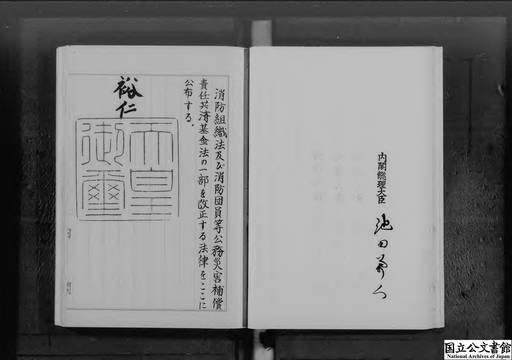 消防組織法及び消防団員等公務災害補償
責任共済基金法の一部を改正する法律をここに
公布する。
裕仁
天皇
御璽
内閣総理大臣
池田勇人
国立公文書館
National Archives of Japan